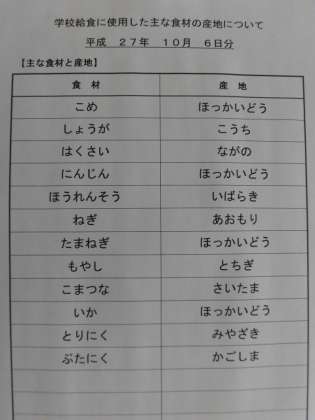 学校給食に使用した主な食材の産地について
平成 27年 10月 6日分
【主な食材と産地】
食 材 産 地
こめ ほっかいどう
しょうが こうち
はくさい ながの
にんじん ほっかいどう
ほうれんそう いばらき
ねぎ あおもり
たまねぎ ほっかいどう
もやし とちぎ
こまつな さいたま
いか ほっかいどう
とりにく みやざき
ぶたにく かごしま